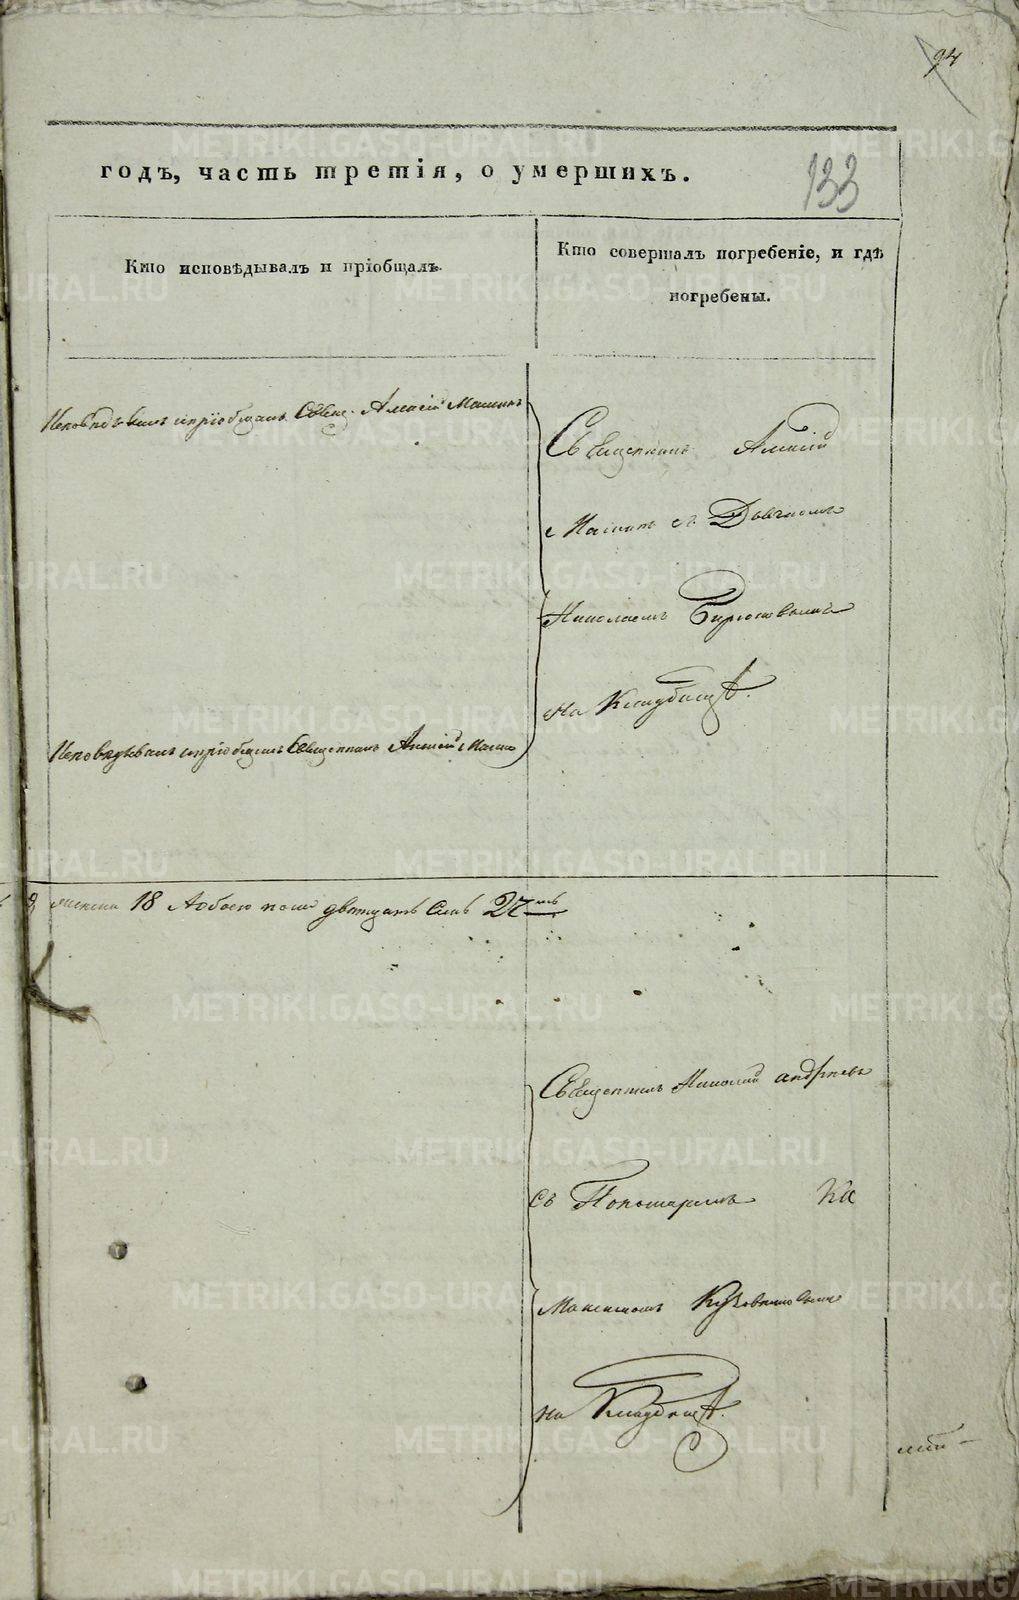 94
133
годъ, часть третія, о умершихъ.
Кто исповѣдывалъ и пріобщалъ.
Кто совершалъ погребеніе, и гдѣ
погребены.
Исповѣдывалъ и пріобщалъ Свящ. Алексій
Священникъ Алексій
съ Дьячкомъ
Николаемъ Бирюковымъ
на Кладбищѣ.
Исповѣдывалъ и пріобщалъ Священникъ Алексій
18 Аобоего пола дватцать семь 27мь
Священникъ Николай Андреевъ
съ Пономаремъ
Максимомъ
на Кладбищѣ.
METRIKI.GASO-URAL.RU